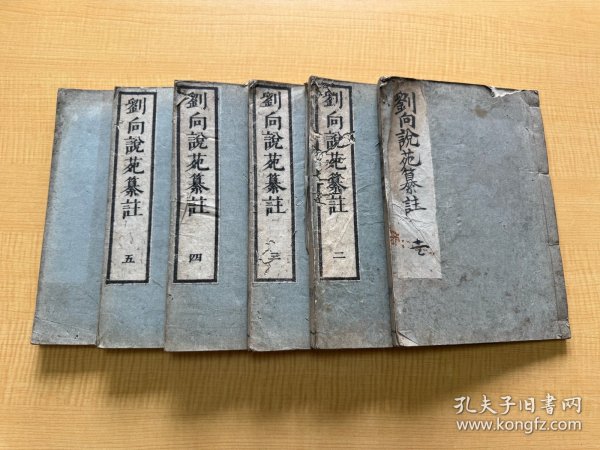 劉向說苑纂註
劉向說苑纂註
二
劉向說苑纂註
三
劉向說苑纂註
四
劉向說苑纂註
五
孔夫子旧书网
www.kongfz.com